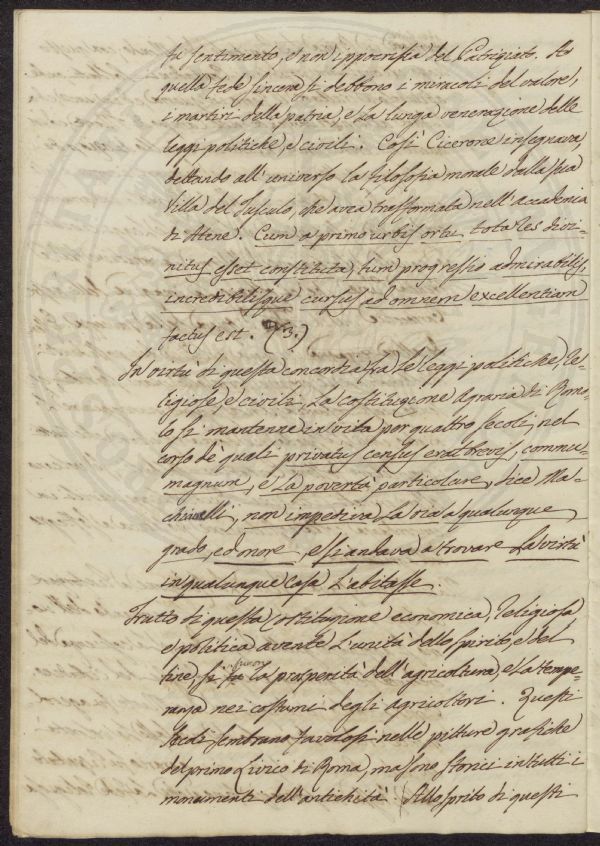 fu sentimento, e non ippocrisia del Patriziato. Ad
quella fede sincera si debbono i miracoli del valore,
i martiri della patria, e la lunga venerazione delle
leggi politiche, e civili. Così Cicerone insegnava,
dettando all'universo la filosofia morale dalla sua
Villa del Tusculo, che avea trasformata nell'Accademia
di Atene. Cum a primo urbis ortu, tota res divi-
nitus esset constituta, tum progressio admirabilis,
incredibilisque cursus ad omnem excellentiam
factus est. (3.)
In virtù di questa concordia fra le leggi politiche, re-
ligiose, e civili, la costituzione Agraria di Romo-
lo si mantenne in vita per quattro secoli, nel
corso de' quali privatus census erat brevis, commune
magnum, e la povertà particolare, dice Ma-
chiavelli, non impediva la via a qualunque
grado, ed onore, e si andava a trovare la virtù
in qualunque casa l'abitasse.
Frutto di questa costituzione economica, religiosa
e politica avente l'unità dello spirito, e del
fine, si fu la prosperità dell'agricoltura, e la tempe-
ranza nei costumi degli agricoltori. Questi
secoli sembrano favolosi nelle pitture grafiche
del primo Livico di Roma, ma sono storici in tutti i
monumenti dell'antichità. Allo spirito di questi